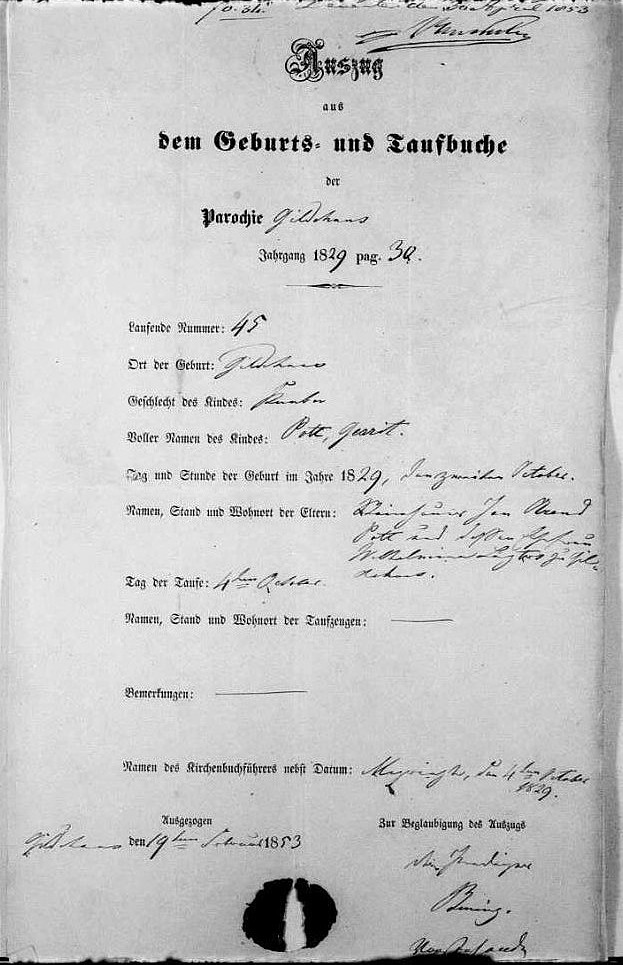 1853
Auszug
aus
dem Geburts- und Taufbuche
der
Parochie Gildehaus
Jahrgang 1829 pag. 30.
Laufende Nummer: 45
Ort der Geburt: Gildehaus
Geschlecht des Kindes: Knabe
Voller Namen des Kindes: Pott, Gerrit.
Tag und Stunde der Geburt im Jahre 1829, den zweiten October.
Namen, Stand und Wohnort der Eltern: Jan
Pott und dessen Ehefrau
Wilhelmina zu Gil-
dehaus.
Tag der Taufe: 4ten October.
Namen, Stand und Wohnort der Taufzeugen:
Bemerkungen:
Namen des Kirchenbuchführers nebst Datum: den 4ten October
1829.
Ausgezogen
Zur Beglaubigung des Auszugs
Gildehaus den 19ten Februar 1853